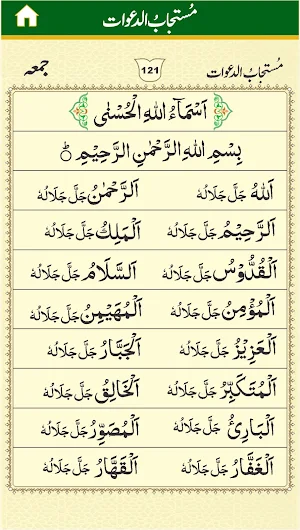 مُستجابُ الدعوات
مُستجابُ الدعوات 121 جمعہ
اَسْمَآءُ اللهِ الْحُسْنٰى
بِسْمِ اللهِ الرَّحْمٰنِ الرَّحِيْمِ
اَللهُ جَلَّ جَلَالُهٗ اَلرَّحْمٰنُ جَلَّ جَلَالُهٗ
اَلرَّحِيْمُ جَلَّ جَلَالُهٗ اَلْمَلِكُ جَلَّ جَلَالُهٗ
اَلْقُدُّوْسُ جَلَّ جَلَالُهٗ اَلسَّلَامُ جَلَّ جَلَالُهٗ
اَلْمُؤْمِنُ جَلَّ جَلَالُهٗ اَلْمُهَيْمِنُ جَلَّ جَلَالُهٗ
اَلْعَزِيْزُ جَلَّ جَلَالُهٗ اَلْجَبَّارُ جَلَّ جَلَالُهٗ
اَلْمُتَكَبِّرُ جَلَّ جَلَالُهٗ اَلْخَالِقُ جَلَّ جَلَالُهٗ
اَلْبَارِئُ جَلَّ جَلَالُهٗ اَلْمُصَوِّرُ جَلَّ جَلَالُهٗ
اَلْغَفَّارُ جَلَّ جَلَالُهٗ اَلْقَهَّارُ جَلَّ جَلَالُهٗ